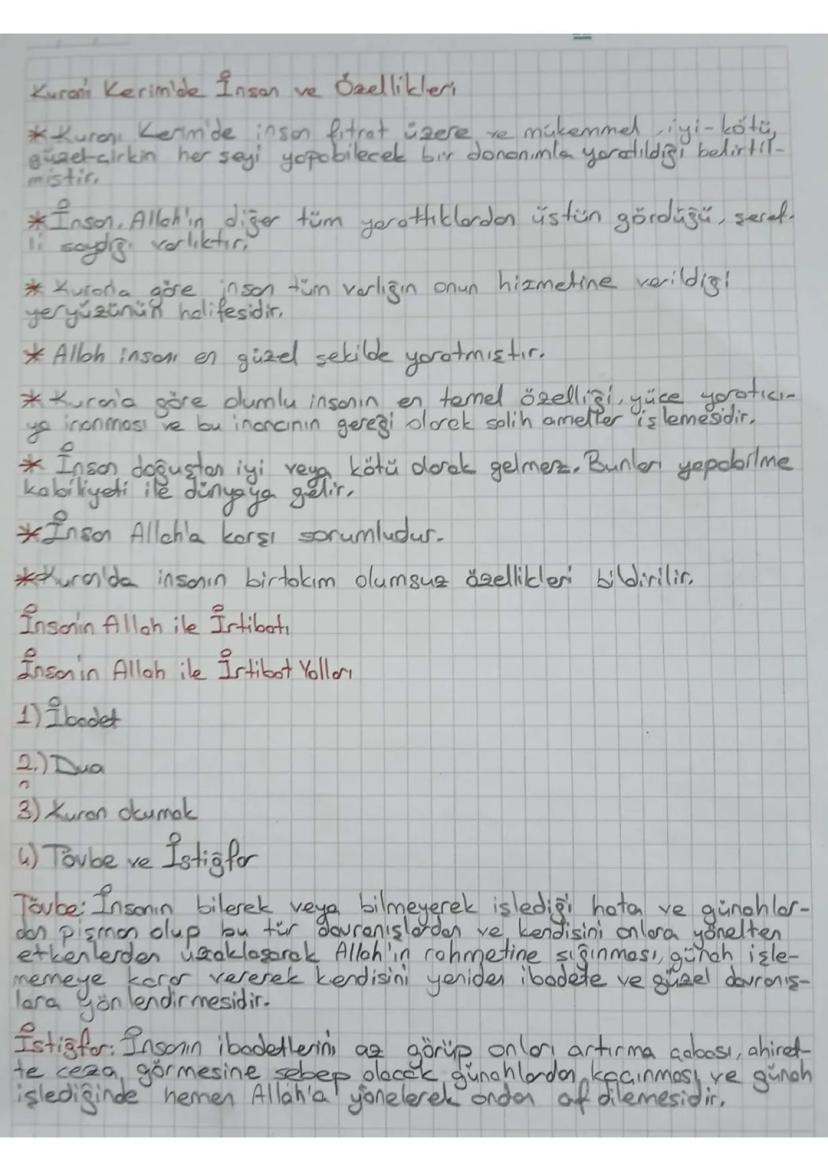 Kuranı Kerim'de İnsan ve Özellikleri
* Kuranı Kerim'de insan fıtrat üzere ve mükemmel, iyi-kötü,
güzel-çirkin her şeyi yapabilecek bir donanımla yaratıldığı belirtil-
miştir.
* İnsan, Allah'ın diğer tüm yarattıklarından üstün gördüğü, şeref-
li saydığı varlıktır.
* Kurana göre insan tüm varlığın onun hizmetine verildiği
yeryüzünün halifesidir.
* Allah insanı en güzel şekilde yaratmıştır.
* Kuran'a göre olumlu insanın en temel özelliği, yüce yaratıcı-
ya inanması ve bu inancının gereği olarak salih ameller işlemesidir.
* İnsan doğuştan iyi veya kötü olarak gelmez. Bunları yapabilme
kabiliyeti ile dünyaya gelir.
* İnsan Allah'a karşı sorumludur.
* Kuran'da insanın birtakım olumsuz özellikleri bildirilir.
İnsanın Allah ile İrtibatı
İnsanın Allah ile İrtibat Yolları
1) İbadet
2.) Dua
3) Kuran okumak
4) Tövbe ve İstiğfar
Tövbe: İnsanın bilerek veya bilmeyerek işlediği hata ve günahlar-
dan pişman olup bu tür davranışlardan ve kendisini onlara yönelten
etkenlerden uzaklaşarak Allah'ın rahmetine sığınması, günah işle-
memeye karar vererek kendisini yeniden ibadete ve güzel davranış-
lara yönlendirmesidir.
İstiğfar: İnsanın ibadetlerini az görüp onları artırma çabası, ahiret-
te ceza görmesine sebep olacak günahlardan kaçınması ve günah
işlediğinde hemen Allah'a yönelerek ondan af dilemesidir.